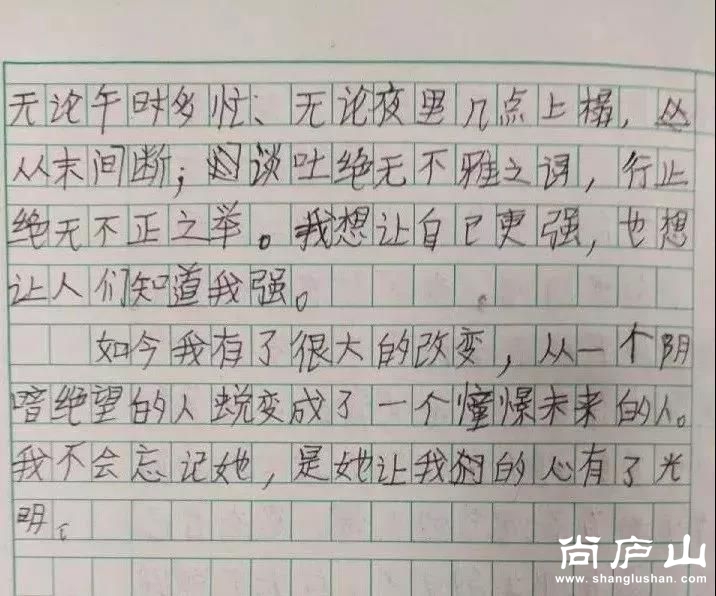 无论午时多忙、无论夜里几点上榻，
从末间断；谈吐绝无不雅之词，行止
绝无不正之举。我想让自己更强，也想
让人们知道我强。
如今我有了很大的改变，从一个阴
暗绝望的人蜕变成了一个憧憬未来的人。
我不会忘记她，是她让我的心有了光
明。
尚庐山
www.shanglushan.com